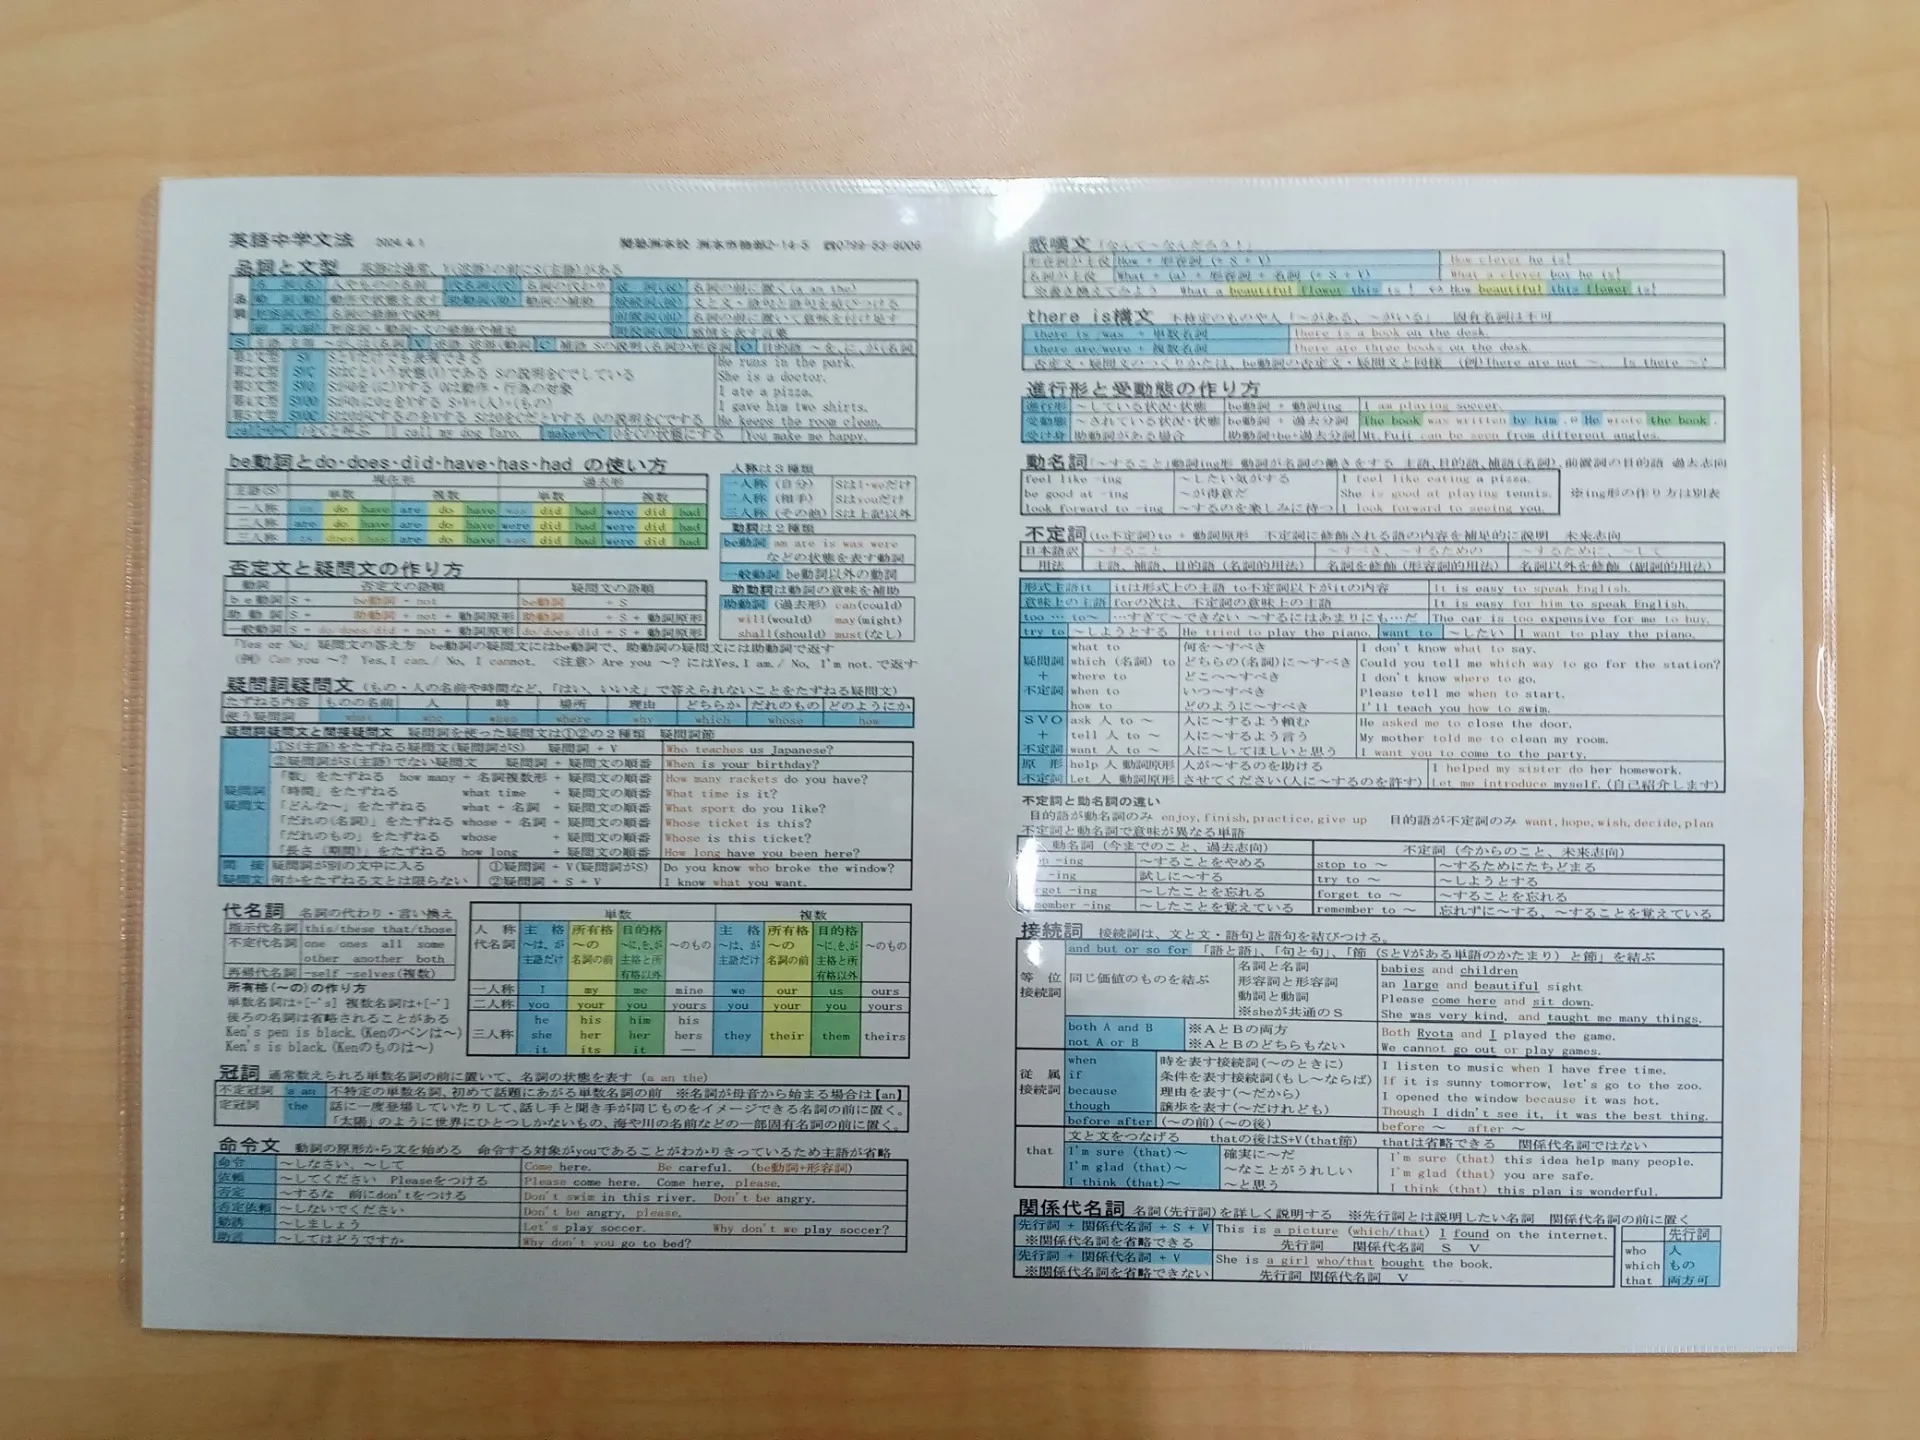 英語中学文法 2024.4.1 洲本校 洲本市物部2-14-5 ☎0799-53-6006
品詞と文型 英語は通常、V(述語)の前にS(主語)がある
名詞の前に置く(a an the)
動詞の補助 文と文・語句と語句を結びつける
名詞の修飾や説明 名詞の前に置いて意味を付け足す
感情を表す言葉
第1文型 SV SとVだけでも表現できる He runs in the park.
第2文型 SVC SはCという状態(V)である Sの説明をCでしている She is a doctor.
第3文型 SVO SがOを(に)Vする Oは動作・行為の対象 I ate a pizza.
第4文型 I gave him two shirts.
第5文型 SVOC He keeps the room clean.
call+O+C OをCと呼ぶ I call my dog Taro. make+O+C OをCの状態にする You make me happy.
be動詞とdo・does・did・have・has・had の使い方
主語(S) 現在形 過去形
単数 複数 単数 複数
一人称 do have are do have was did had were did had
二人称 are do have are do have were did had were did had
三人称 is does has are do have was did had were did had
人称は3種類
一人称 (自分) SはI・weだけ
二人称 (相手) Sはyouだけ
三人称 (その他) Sは上記以外
動詞は2種類
be動詞 am are is was were
などの状態を表す動詞
一般動詞 be動詞以外の動詞
助動詞は動詞の意味を補助
助動詞 (過去形) can(could)
will(would) may(might)
shall(should) must(なし)
否定文と疑問文の作り方
動詞 否定文の語順 疑問文の語順
be動詞 S + be動詞 + not be動詞 + S
助動詞 S + 助動詞 + not + 動詞原形 助動詞 + S + 動詞原形
一般動詞 S + do/does/did + not + 動詞原形 do/does/did + S + 動詞原形
「Yes or No」疑問文の答え方 be動詞の疑問文にはbe動詞で、助動詞の疑問文には助動詞で返す
(例) Can you ~? Yes,I can./ No, I cannot. <注意> Are you ~? にはYes,I am./ No, I'm not.で返す
疑問詞疑問文 (もの・人の名前や時間など、「はい、いいえ」で答えられないことをたずねる疑問文)
たずねる内容 ものの名前 人 時 場所 理由 どちらか だれのもの どのようにか
使う疑問詞 what who when where why which whose how
疑問詞疑問文と間接疑問文 疑問詞を使った疑問文は①②の2種類 疑問詞節
疑問詞疑問文
①S(主語)をたずねる疑問文(疑問詞がS) 疑問詞 + V Who teaches us Japanese?
②疑問詞がS(主語)でない疑問文 疑問詞 + 疑問文の順番 When is your birthday?
「数」をたずねる how many + 名詞複数形 + 疑問文の順番 How many rackets do you have?
「時間」をたずねる what time + 疑問文の順番 What time is it?
「どんな~」をたずねる what + 名詞 + 疑問文の順番 What sport do you like?
「だれの(名詞)」をたずねる whose + 名詞 + 疑問文の順番 Whose ticket is this?
「だれのもの」をたずねる whose + 疑問文の順番 Whose is this ticket?
「長さ(期間)」をたずねる how long + 疑問文の順番 How long have you been here?
間接 疑問詞が別の文中に入る ①疑問詞 + V(疑問詞がS) Do you know who broke the window?
疑問文 何かをたずねる文とは限らない ②疑問詞 + S + V I know what you want.
代名詞 名詞の代わり・言い換え
指示代名詞 this/these that/those
不定代名詞 one ones all some
other another both
再帰代名詞 -self -selves(複数)
所有格(~の)の作り方
単数名詞は+[-'s] 複数名詞は+[-']
後ろの名詞は省略されることがある
Ken's pen is black.(Kenのペンは~)
Ken's is black.(Kenのものは~)
単数 複数
人称 主格 所有格 目的格 主格 所有格 目的格
代名詞 ~は、が ~の ~に、を、が ~のもの ~は、が ~の ~に、を、が ~のもの
主語だけ 名詞の前 主格と所 主語だけ 名詞の前 主格と所
有格以外 有格以外
一人称 I my me mine we our us ours
二人称 you your you yours you your you yours
he his him his
三人称 she her her hers they their them theirs
it its it —
冠詞 通常数えられる単数名詞の前に置いて、名詞の状態を表す (a an the)
不定冠詞 a an 不特定の単数名詞、初めて話題にあがる単数名詞の前 ※名詞が母音から始まる場合は【an】
定冠詞 the 話に一度登場していたりして、話し手と聞き手が同じものをイメージできる名詞の前に置く。
「太陽」のように世界にひとつしかないもの、海や川の名前などの一部固有名詞の前に置く。
命令文 動詞の原形から文を始める 命令する対象がyouであることがわかりきっているため主語が省略
命令 ~しなさい、~して Come here. Be careful. (be動詞+形容詞)
依頼 ~してください Pleaseをつける Please come here. Come here, please.
否定 ~するな 前にdon'tをつける Don't swim in this river. Don't be angry.
否定依頼 ~しないでください Don't be angry, please.
勧誘 ~しましょう Let's play soccer. Why don't we play soccer?
助言 ~してはどうですか Why don't you go to bed?
感嘆文 「なんて~なんだろう!」
形容詞が主役 How + 形容詞 (+ S + V) How clever he is!
名詞が主役 What + (a) + 形容詞 + 名詞 (+ S + V) What a clever boy he is!
※書き換えてみよう What a beautiful flower this is ! ⇔ How beautiful this flower is!
there is構文 不特定のものや人「~がある、~がいる」 固有名詞は不可
there is/was + 単数名詞 There is a book on the desk.
there are/were + 複数名詞 There are three books on the desk.
否定文・疑問文のつくりかたは、be動詞の否定文・疑問文と同様 (例)There are not ~. Is there ~?
進行形と受動態の作り方
進行形 ~している状況・状態 be動詞 + 動詞ing I am playing soccer.
受動態 ~されている状況・状態 be動詞 + 過去分詞 The book was written by him .⇔ He wrote the book .
受け身 助動詞がある場合 助動詞+be+過去分詞 Mt.Fuji can be seen from different angles.
動名詞 「~すること」動詞ing形 動詞が名詞の働きをする 主語、目的語、補語(名詞)、前置詞の目的語 過去志向
feel like -ing ~したい気がする I feel like eating a pizza.
be good at -ing ~が得意だ She is good at playing tennis. ※ing形の作り方は別表
look forward to -ing ~するのを楽しみに待つ I look forward to seeing you.
不定詞 (to不定詞)to + 動詞原形 不定詞に修飾される語の内容を補足的に説明 未来志向
日本語訳 ~すること ~すべき、~するための ~するために、~して
用法 主語、補語、目的語 (名詞的用法) 名詞を修飾 (形容詞的用法) 名詞以外を修飾 (副詞的用法)
形式主語it itは形式上の主語 to不定詞以下がitの内容 It is easy to speak English.
意味上の主語 forの次は、不定詞の意味上の主語 It is easy for him to speak English.
too … to~ …すぎて~できない ~するにはあまりにも…だ The car is too expensive for me to buy.
try to ~しようとする He tried to play the piano. want to ~したい I want to play the piano.
疑問詞+不定詞
what to 何を~すべき I don't know what to say.
which (名詞) to どちらの(名詞)に~すべき Could you tell me which way to go for the station?
where to どこへ~すべき I don't know where to go.
when to いつ~すべき Please tell me when to start.
how to どのように~すべき I'll teach you how to swim.
SVO ask 人 to ~ 人に~するよう頼む He asked me to close the door.
+ tell 人 to ~ 人に~するよう言う My mother told me to clean my room.
不定詞 want 人 to ~ 人に~してほしいと思う I want you to come to the party.
原形 help 人 動詞原形 人が~するのを助ける I helped my sister do her homework.
不定詞 Let 人 動詞原形 させてください(人に~するのを許す) Let me introduce myself.(自己紹介します)
不定詞と動名詞の違い
目的語が動名詞のみ enjoy,finish,practice,give up 目的語が不定詞のみ want,hope,wish,decide,plan
不定詞と動名詞で意味が異なる単語
動名詞 (今までのこと、過去志向) 不定詞 (今からのこと、未来志向)
-ing ~することをやめる stop to ~ ~するためにたちどまる
-ing 試しに~する try to ~ ~しようとする
-ing ~したことを忘れる forget to ~ ~することを忘れる
-ing ~したことを覚えている remember to ~ 忘れずに~する、~することを覚えている
接続詞 接続詞は、文と文・語句と語句を結びつける。
and but or so for 「語と語」、「句と句」、「節 (SとVがある単語のかたまり) と節」を結ぶ
等位接続詞 同じ価値のものを結ぶ
名詞と名詞 babies and children
形容詞と形容詞 an large and beautiful sight
動詞と動詞 Please come here and sit down.
※sheが共通のS She was very kind, and taught me many things.
both A and B ※AとBの両方 Both Ryota and I played the game.
not A or B ※AとBのどちらもない We cannot go out or play games.
従属接続詞
when 時を表す接続詞(~のときに) I listen to music when I have free time.
if 条件を表す接続詞(もし~ならば) If it is sunny tomorrow, let's go to the zoo.
because 理由を表す(~だから) I opened the window because it was hot.
though 譲歩を表す(~だけれども) Though I didn't see it, it was the best thing.
before after (~の前)(~の後) before ~ after ~
that 文と文をつなげる thatの後はS+V(that節) thatは省略できる 関係代名詞ではない
I'm sure (that)~ 確実に~だ I'm sure (that) this idea help many people.
I'm glad (that)~ ~なことがうれしい I'm glad (that) you are safe.
I think (that)~ ~と思う I think (that) this plan is wonderful.
関係代名詞 名詞(先行詞)を詳しく説明する ※先行詞とは説明したい名詞 関係代名詞の前に置く
先行詞 + 関係代名詞 + S + V This is a picture (which/that) I found on the internet.
※関係代名詞を省略できる 先行詞 関係代名詞 S V
先行詞 + 関係代名詞 + V She is a girl who/that bought the book.
※関係代名詞を省略できない 先行詞 関係代名詞 V
先行詞
who 人
which もの
that 両方可